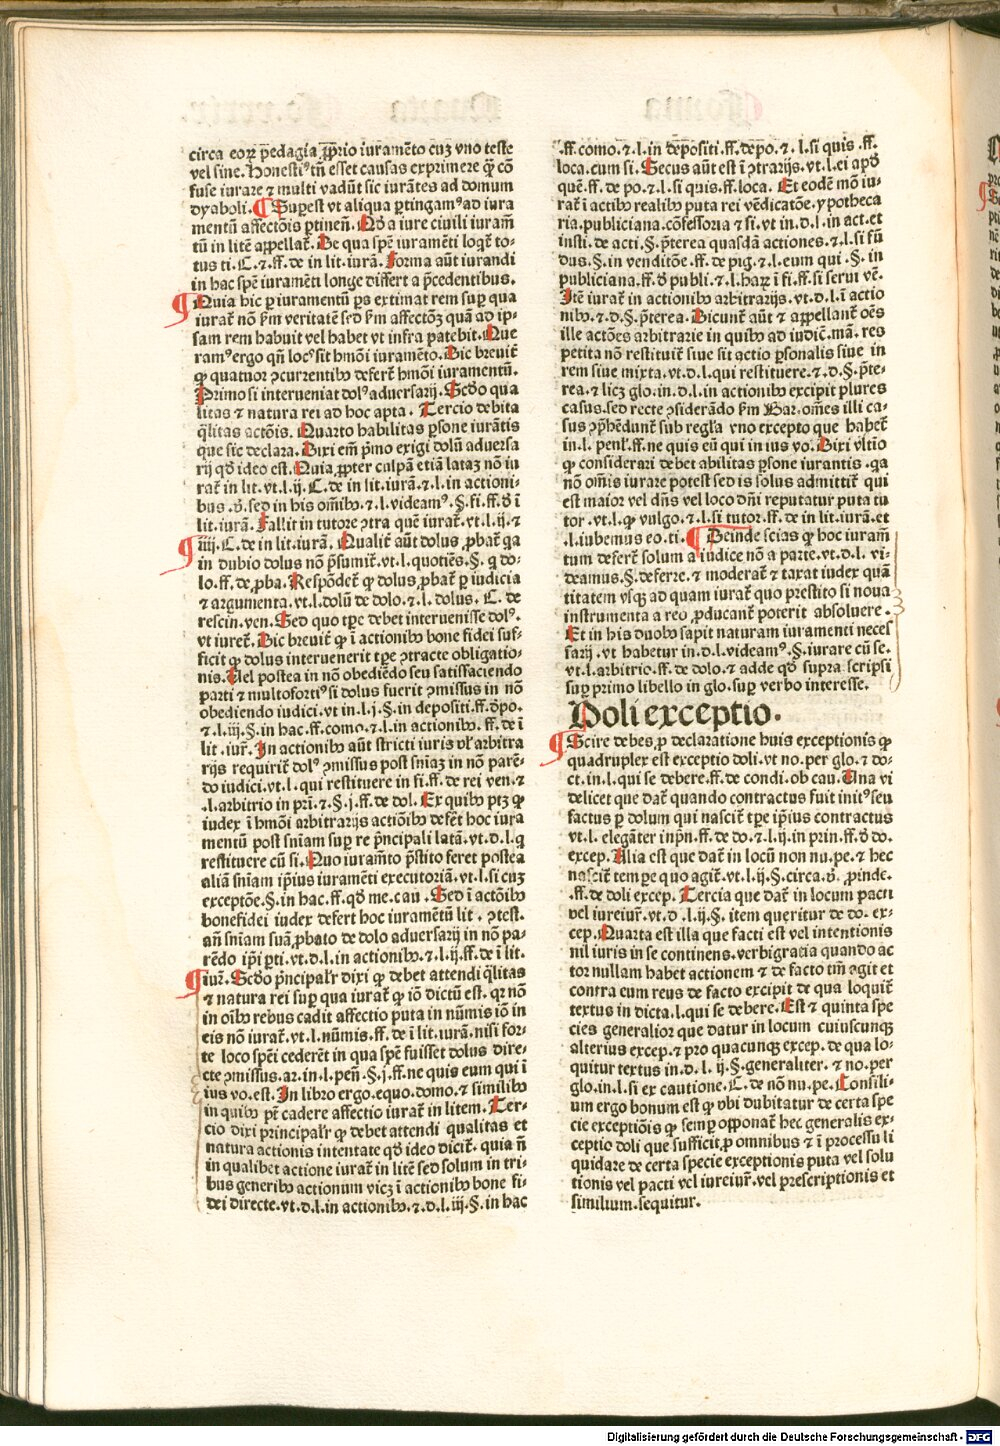 circa eoꝝ pedagia ꝓprio iuramēto cuʒ vno teste
vel sine. Honestiꝰ tn̄ esset causas exprimere ꝙ cō
fuse iurare ⁊ multi vadūt sic iurātes ad domum
dyaboli. ¶ Suꝑest vt aliqua ꝑtingamꝰ ad iura
mentū affectōis ꝑtinen̄. Qđ a iure ciuili iuram̄
tū in litē appellat̄. De qua spē iuramēti loqt̄ to-
tus ti. C. ⁊ .ff. de in lit. iurā. Forma aūt iurandi
in hac spē iuramēti longe differt a p̄cedentibus.
¶ Quia hic ꝑ iuramentū ꝑs extimat rem suꝑ qua
iurat̄ nō ẜm veritatē sed ẜm affectōʒ quā ad ip-
sam rem habuit vel habet vt infra patebit. Que
ramꝰ ergo qn̄ locꝰ sit hmōi iuramēto. Dic breuit̄
ꝙ quatuor ꝯcurrentibꝰ defert̄ hmōi iuramentū.
Primo si interueniat dolꝰ aduersarij. Scđo qua
litas ⁊ natura rei ad hoc apta. Tercio debita
q̄litas actōis. Quarto habilitas ꝑsone iurātis
que sic declara. Dixi em̄ pͥmo exigi dolū aduersa
rij qđ ideo est. Quia ꝓpter culpā etiā lataʒ nō iu
rat̄ in lit. vt. l. ij. C. de in lit. iurā. ⁊ .l. in actioni-
bus .v̄. sed in his om̄ibꝰ. ⁊ .l. videamꝰ. §. fi. ff. đ ī
lit. iurā. Fallit in tutore ꝯtra quē iurat̄. vt. l. ij. ⁊
¶ iiij. C. de in lit. iurā. Qualit̄ aūt dolus ꝓbat̄ qa
in dubio dolus nō p̄sumit̄. vt. l. quotiēs. §. q do-
lo. ff. de. ꝓba. Respōdet̄ ꝙ dolus ꝓbat̄ ꝑ iudicia
⁊ argumenta. vt. l. dolū de dolo. ⁊ .l. dolus. C. de
rescin. ven. Sed quo tꝑe debet interuenisse dolꝰ.
vt iuret̄. Dic breuit̄ ꝙ ī actionibꝰ bone fidei suf-
ficit ꝙ dolus interuenerit tꝑe ꝯtracte obligatio-
nis. Uel postea in nō obediēdo seu satisfaciendo
parti ⁊ multofortiꝰ si dolus fuerit ꝯmissus in nō
obediendo iudici. vt in. l. j. §. in depositi. ff. đpo.
⁊ .l. iij. §. in hac. ff. como. ⁊ .l. in actionibꝰ. ff. de ī
lit. iur̄. In actionibꝰ aūt stricti iuris vl̄ arbitra
rijs requirit̄ dolꝰ ꝯmissus post sn̄iaʒ in nō parē-
do iudici. vt. l. qui restituere in fi. ff. de rei ven. ⁊
.l. arbitrio in pri. ⁊ .§. j. ff. de dol. Ex quibꝰ ptʒ ꝙ
iudex ī hmōi arbitrarijs actiōibꝰ defert̄ hoc iura
mentū post sn̄iam suꝑ re p̄ncipali latā. vt. d. l. q
restituere cū si. Quo iuram̄to p̄stito feret postea
aliā sn̄iam ip̄ius iuramēti executoriā. vt. l. si cuʒ
exceptōe. §. in hac. ff. qđ me. cau. Sed ī actōibꝰ
bonefidei iudex defert hoc iuramētū lit. ꝯtest.
an̄ sn̄iam suā ꝓbato de dolo aduersarij in nō pa-
rēdo ip̄i ꝑti. vt. d. l. in actionibꝰ. ⁊ .l. ij. ff. de ī lit.
¶ iur̄. Scđo p̄ncipalr̄ dixi ꝙ debet attendi q̄litas
⁊ natura rei suꝑ qua iurat̄ ꝙ iō dictū est. qꝛ nō
in oībꝰ rebus cadit affectio puta in nūmis iō in
eis nō iurat̄. vt. l. nūmis. ff. de ī lit. iurā. nisi for-
te loco spēi cederēt in qua spē fuisset dolus dire-
cte ꝯmissus. ar. in. l. pen̄. §. j. ff. ne quis eum qui ī
ius vo. est. In libro ergo. equo. domo. ⁊ similibꝰ
in quibꝰ pt̄ cadere affectio iurat̄ in litem. Ter-
cio dixi principalr̄ ꝙ debet attendi qualitas et
natura actionis intentate qđ ideo dicit̄. quia n̄
in qualibet actione iurat̄ in litē sed solum in tri-
bus generibꝰ actionum vicʒ ī actionibꝰ bone fi-
dei directe. vt. d. l. in actionibꝰ. ⁊ .d. l. iij. §. in hac
.ff. como. ⁊ .l. in depositi. ff. depo. ⁊ .l. si quis. ff.
loca. cum si. Secus aūt est ī ꝯtrarijs. vt. l. ei apđ
quē. ff. de po. ⁊ .l. si quis. ff. loca. Et eodē mō iu-
rat̄ ī actibꝰ realibꝰ puta rei vēdicatōe. ypotheca
ria. publiciana. cōfessoria ⁊ si. vt in. d. l. in act. et
insti. de acti. §. p̄terea quasdā actiones. ⁊ .l. si fū
dus. §. in venditōe. ff. de pig. ⁊ .l. eum qui .§. in
publiciana. ff. đ publi. ⁊ .l. haꝝ ī fi. ff. si serui vē.
Itē iurat̄ in actionibꝰ arbitrarijs. vt. d. l. ī actio
nibꝰ. ⁊ .d. §. p̄terea. Dicunt̄ aūt ⁊ appellant̄ oēs
ille actōes arbitrarie in quibꝰ ad iudic̄. mā. res
petita nō restituit̄ siue sit actio ꝑsonalis siue in
rem siue mixta. vt. d. l. qui restituere. ⁊ .d. §. p̄te-
rea. ⁊ licʒ glo. in. d. l. in actionibꝰ excipit plures
casus. sed recte ꝯsiderādo ẜm Bar. om̄es illi ca-
sus ꝯp̄hēdunt̄ sub regl̄a vno excepto que habet̄
in. l. penl̄. ff. ne quis eū qui in ius vo. Dixi vltio
ꝙ considerari debet abilitas ꝑsone iurantis. qa
nō om̄is iurare potest sed is solus admittit̄ qui
est maior vel dn̄s vel loco dn̄i reputatur puta tu
tor. vt. l. ꝙ vulgo. ⁊ .l. si tutor. ff. de in lit. iurā. et
.l. iubemus eo. ti. ¶ Deinde scias ꝙ hoc iuram̄
tum defert̄ solum a iudice nō a parte. vt. d. l. vi-
deamus. §. deferre. ⁊ moderat̄ ⁊ taxat iudex quā
titatem vsqʒ ad quam iurat̄ quo prestito si noua
instrumenta a reo ꝓducant̄ poterit absoluere.
Et in his duobꝰ sapit naturam iuramenti neces
sarij. vt habetur in. d. l. videamꝰ. §. iurare cū se.
vt. l. arbitrio. ff. de dolo. ⁊ adde qđ supra scripsi
suꝑ primo libello in glo. suꝑ verbo interesse.
Doli exceptio.
¶ Scire debes ꝓ declaratione huis exceptionis ꝙ
quadruplex est exceptio doli. vt no. per glo. ⁊ do-
ct. in. l. qui se debere. ff. de condi. ob cau. Una vi
delicet que dat̄ quando contractus fuit initꝰ seu
factus ꝑ dolum qui nascit̄ tꝑe ip̄ius contractus
vt. l. elegāter inpn̄. ff. de do. ⁊ .l. ij. in prin. ff. đ do.
excep. Alia est que dat̄ in locū non nu. pe. ⁊ hec
nascit̄ tempe quo agit̄. vt. l. ij. §. circa. v̄. ꝓinde.
.ff. de doli excep. Tercia que dat̄ in locum pacti
vel iureiur̄. vt. d .l. ij. §. item queritur de do. ex-
cep. Quarta est illa que facti est vel intentionis
nil iuris in se continens. verbigratia quando ac
tor nullam habet actionem ⁊ de facto tn̄ agit et
contra eum reus de facto excipit de qua loquit̄
textus in dicta. l. qui se debere. Est ⁊ quinta spe
cies generalior que datur in locum cuiuscunqʒ
alterius excep. ⁊ pro quacunqʒ excep. de qua lo-
quitur textus in. d. l. ij. §. generaliter. ⁊ no. per
glo. in. l. si ex cautione. C. de nō nu. pe. Consili-
um ergo bonum est ꝙ vbi dubitatur de certa spe
cie exceptiōis ꝙ semꝑ opponat̄ hec generalis ex-
ceptio doli que sufficit ꝓ omnibus ⁊ ī processu li
quidare de certa specie exceptionis puta vel solu
tionis vel pacti vel iureiur̄. vel prescriptionis et
similium. sequitur.
Digitalisierung gefördert durch die Deutsche Forschungsgemeinschaft - DFG